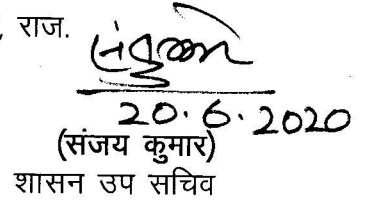 , राज.
20.6.2020
(संजय कुमार)
शासन उप सचिव